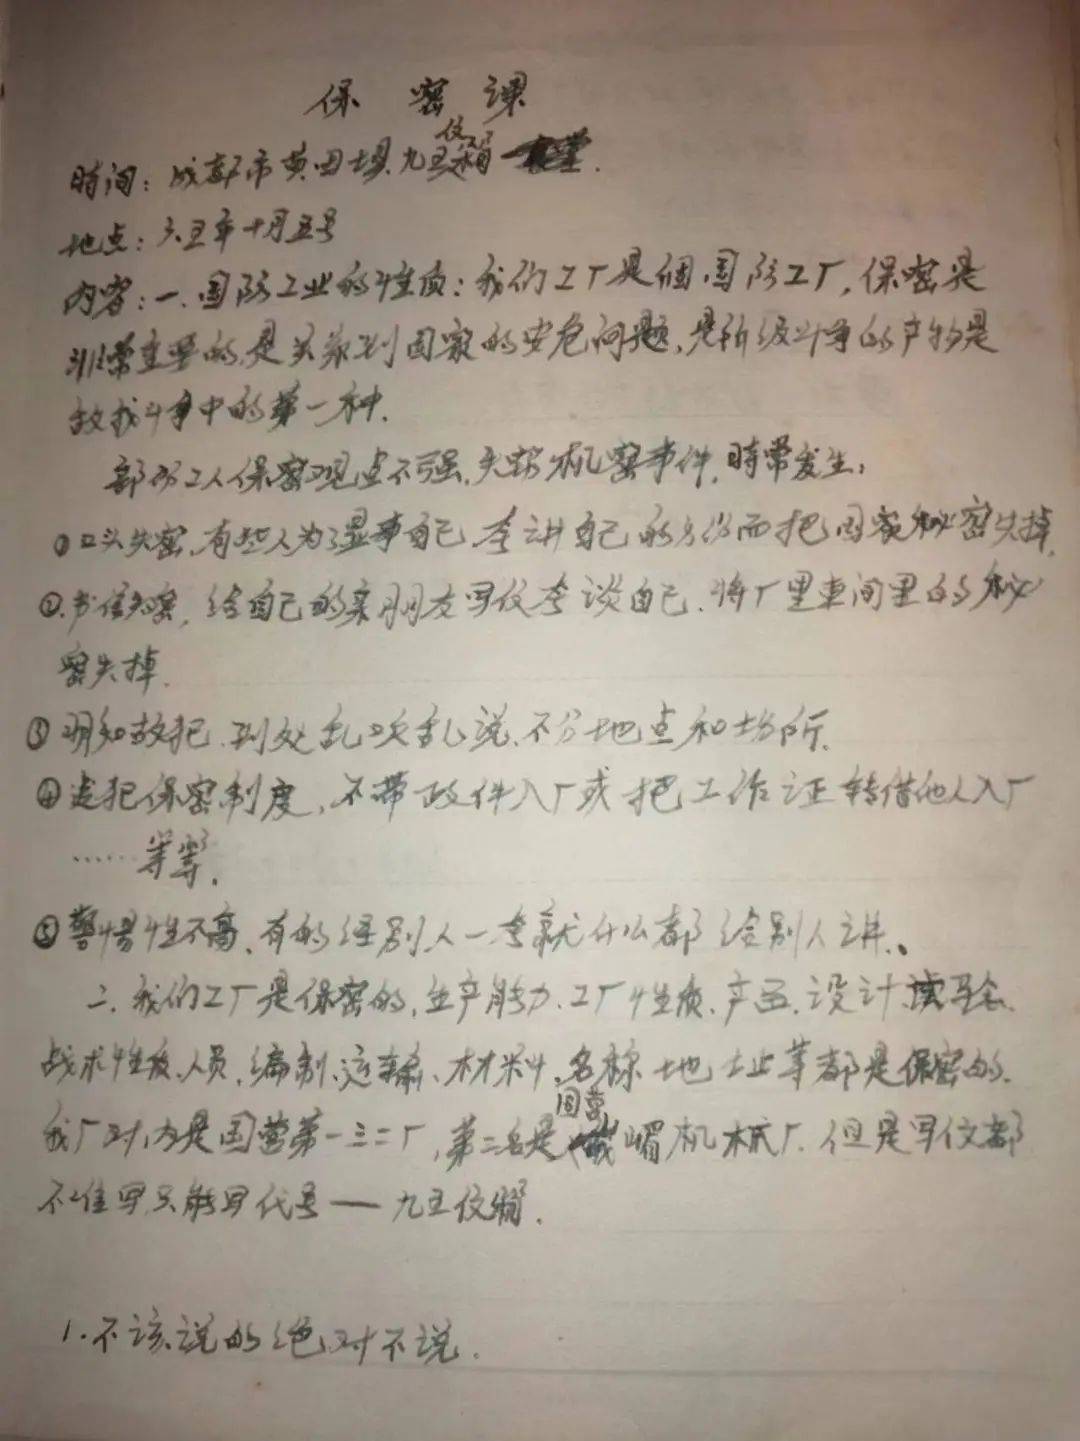 保密课
時间：成都市黄田坝九五信箱
地点：六五年十月五号
内容：一.国防工业的性质：我们工厂是個国防工厂,保密是
非常重要的是关系到国家的安危问题,是阶级斗争的产物是
敌我斗争中的第一种.
部份工人保密观点不强,失密机密事件,時常发生:
①口头失密,有些人为了显事自己,夸讲自己的身份而把国家秘密失掉.
②.书信失密,给自己的亲朋友写信夸谈自己.将厂里車间里的秘
密失掉.
③明知故犯.到处乱吹乱说.不分地点和场所.
④违犯保密制度,不带政件入厂或把工作证转借他人入厂
……等等.
⑤警惕性不高.有的经别人一夸就什么都给别人讲.
二.我们工厂是保密的,生产能力.工厂性质.产品.设计.试验.
战术性质.人员.编制.运输.材料.名称地址等都是保密的.
我厂对内是国营第一三二厂,第二名是国营峨嵋机械厂.但是写信都
不准写只能写代号——九五信箱.
1.不该说的绝对不说.